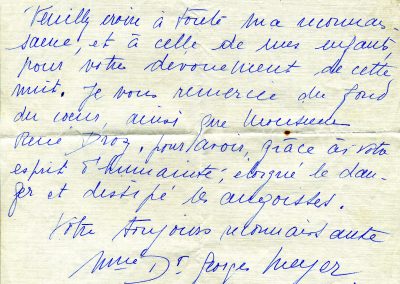 Veuilly croire à toute ma reconnais-
sance, et à celle de mes enfants,
pour votre dévouement de cette
nuit. Je vous remercie du fond
du coeur, ainsi que Monsieur
René Droz, pour avoir, grâce à votre
esprit d'humanité, éloigné le dan-
ger et dissipé les angoisses.
Votre toujours reconnaissante
Mme Dr Georges Meyer